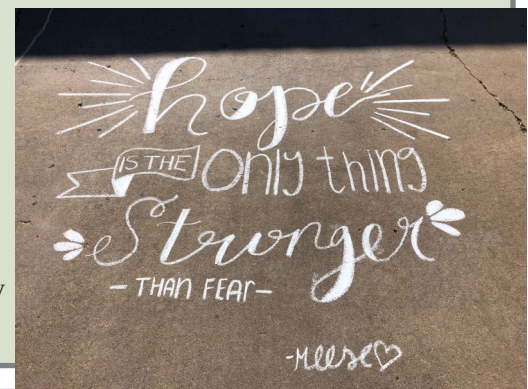 hope
IS THE Only thing
Stronger
- THAN FEAr -
-Meese♡
y